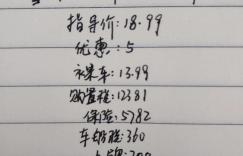 指导价:18.99
优惠:5
裸车:13.99
购置税:12381
保险:5782
车船税:360
上牌:200